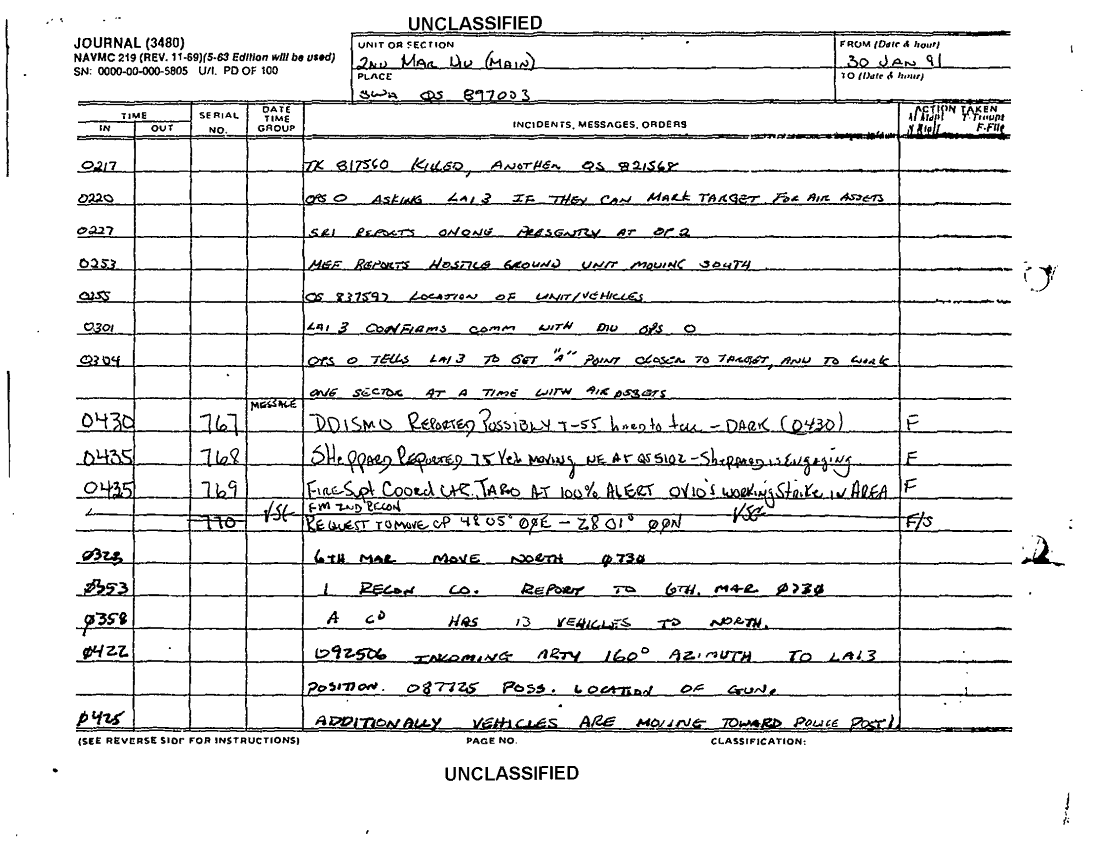 UNCLASSIFIED
JOURNAL (3480)
NAVMC 219 (REV. 11-69)(5-63 Edition will be used)
SN: 0000-00-000-5805 U/I. PD OF 100
UNIT OR SECTION
2ND MAR DIV (MAIN)
PLACE
SWA QS 897003
FROM (Date & hour)
30 JAN 91
TO (Date & hour)
TIME
IN OUT
SERIAL NO.
DATE TIME GROUP
INCIDENTS, MESSAGES, ORDERS
ACTION TAKEN
F-File
0217 TK 817560 KILLED, ANOTHER QS 821568
0220 OPS O ASKING LAI 3 IF THEY CAN MARK TARGET FOR AIR ASSETS
0227 SRI REPORTS ONONG AT OP 2
0253 MEF REPORTS HOSTILE GROUND UNIT MOVING SOUTH
0255 QS 837597 LOCATION OF UNIT/VEHICLES
0301 LAI 3 CONFIRMS COMM WITH DIV OPS O
0304 OPS O TELLS LAI 3 TO GET "A" POINT CLOSER TO TARGET, AND TO WORK
ONE SECTOR AT A TIME WITH AIR ASSETS
MESSAGE
0430 767 DDISMO REPORTED POSSIBLY T-55 - DARK (0430) F
0435 768 SHEPPARD REPORTED 75 Veh MOVING NE AT QS5102 - SHEPPARD is Engaging F
0435 769 Fire Spt Coord Ctr. TARO AT 100% ALERT OV10's working Strike in AREA F
FM 2ND RECON
770 REQUEST TO MOVE CP 48 05° 00E - 28 01° 00N F/S
0328 6TH MAR MOVE NORTH 0730
0353 1 RECON CO. REPORT TO 6TH. MAR 0730
0358 A CO HAS 13 VEHICLES TO NORTH.
0422 092506 INCOMING ARTY 160° AZIMUTH TO LAI3
POSITION. 087725 POSS. LOCATION OF GUN.
0425 ADDITIONALLY VEHICLES ARE MOVING TOWARD POLICE POST
(SEE REVERSE SIDE FOR INSTRUCTIONS) PAGE NO. CLASSIFICATION:
UNCLASSIFIED